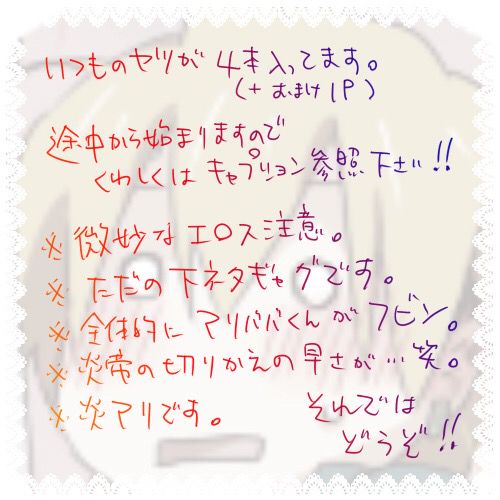 いつものヤツが4本入ってます。
(+おまけ1P)
途中から始まりますので
くわしくはキャプション参照下さい!!
※微妙なエロス注意。
※ただの下ネタギャグです。
※全体的にアリババくんがフビン。
※炎帝の切りかえの早さが…笑。
※炎アリです。
それでは
どうぞ!!